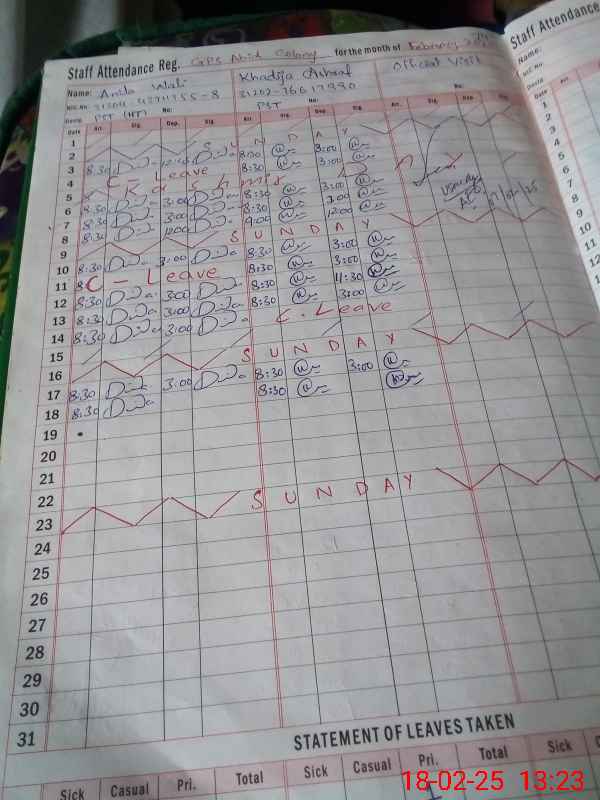 Staff Attendance Reg. GPS Abid Colony for the month of February
Staff Attendance
Name: Anila Wali Khadija Ashraf Official Visit
Name:
NIC No: 31202-7661799 0
Desig. PST (HT) No: PST No: No:
Desig.
Date Arr. Sig. Dep. Sig. Arr. Sig. Dep. Sig. Arr. Sig. Dep. Sig.
Date Arr.
1
2 S U N D A Y
3 8:30 8:30 3:00
4 C - Leave 8:30 3:00
5 Kashmir Day
6 8:30 3:00 8:30 3:00
7 8:30 3:00 8:30 3:00
8 8:30 12:00 9:00 12:00
9 S U N D A Y
10 8:30 3:00 8:30 3:00
11 C - Leave 8:30 3:00
12 8:30 3:00 8:30 11:30
13 8:30 3:00 8:30 3:00
14 8:30 3:00 C. Leave
15
16 S U N D A Y
17 8:30 3:00 8:30 3:00
18 8:30 8:30
19
20
21
22
23 S U N D A Y
24
25
26
27
28
29
30
31
STATEMENT OF LEAVES TAKEN
Sick Casual Pri. Total Sick Casual Pri. Total Sick
18-02-25 13:23